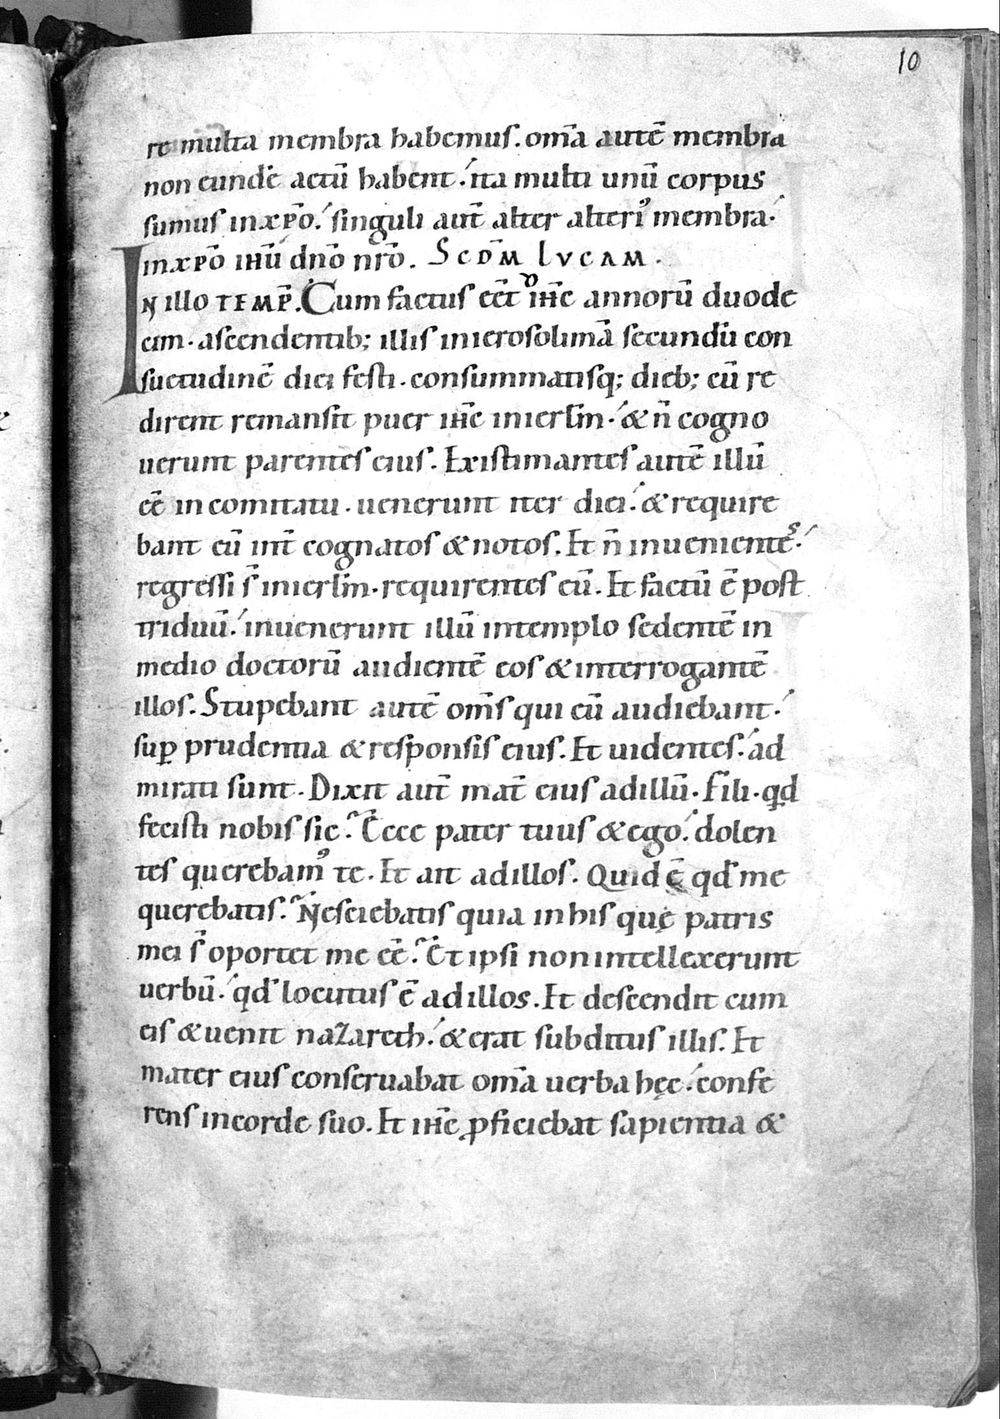 10
re multa membra habemus. om̄a autē membra
non eundē actū habent. ita multi unū corpus
sumus inxp̄o. singuli aut̄ alter alteri᾿ membra.
inxp̄o ihū dn̄o nr̄o. Scd̄m Lvcam.
In illo temp̄. Cum factus eēt ih̄c annorū duode
cim. ascendentib; illis inierosolimā secundū con
suetudinē diei festi. consummatisq; dieb; cū re
dirent remansit puer ih̄c inierl̄m. & n̄ cogno
uerunt parentes eius. Existimantes autē illū
eē in comitatu. uenerunt iter diei. & require
bant eū int̄ cognatos & notos. Et n̄ inuenientes.
regressi s̄ inierl̄m. requirentes eū. Et factū ē post
triduū. inuenerunt illū intemplo sedentē in
medio doctorū audientē eos & interrogantē
illos. Stupebant autē om̄s qui eū audiebant.
sup̱ prudentia & responsis eius. Et uidentes. ad
mirati sunt. Dixit aut̄ mat̄ eius adillū. Fili. qd
fecisti nobis sic. Ecce pater tuus & ego. dolen
tes querebam᾿ te. Et ait adillos. Quid ē qd me
querebatis. Nesciebatis quia in his quę patris
mei s̄ oportet me eē. Et ipsi non intellexerunt
uerbū. qd locutus ē ad illos. Et descendit cum
eis & uenit nazareth. & erat subditus illis. Et
mater eius conseruabat om̄a uerba hęc. confe
rens incorde suo. Et ih̄c ꝓficiebat sapientia &